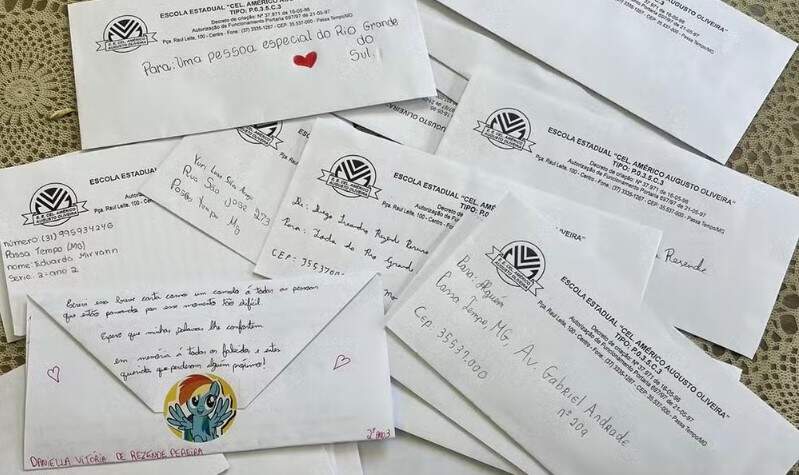 ESCOLA ESTADUAL "CEL. AMÉRICO AUGUSTO
TIPO: P.0.3.5.C.3
Decreto de criação: Nº 37.971 de 16-05-96
Autorização de Funcionamento Portaria 697/97 de 21-05-97
Pça. Raul Leite, 100 - Centro - Fone: (37) 3335-1267 - CEP: 35.537-000 - Passa Tempo/MG
Para: Uma pessoa especial do Rio Grande
do
Sul.
AUGUSTO OLIVEIRA"
ESCOLA ESTADUAL "CEL. AMÉRICO AUGUSTO OLIVEIRA"
TIPO: P.0.3.5.C.3
Decreto de criação: Nº 37.971 de 16-05-96
Autorização de Funcionamento Portaria 697/97 de 21-05-97
Pça. Raul Leite, 100 - Centro - Fone: (37) 3335-1267 - CEP: 35.537-000 - Passa Tempo/MG
Resende
E. E. CEL. AMÉRICO
AUGUSTO OLIVEIRA
ESCOLA ESTADUAL
número: (31) 995934246
Passa Tempo (MG)
nome: Eduardo
Serie: 2-ano 2
Yuri Luna Silva
Rua São
Passa Tempo MG
ESCOLA ESTADUAL "CEL. AMÉRICO
TIPO: P.0
De: Diogo Leandro
Para: Toda do Rio Grande
CEP: 35537.000
Para: Alguém
Passa Tempo, MG, Av. Gabriel Andrade
nº 209
Cep: 35537.000
ESCOLA ESTADUAL "CEL. AMÉRICO AUGUSTO OLIVEIRA"
TIPO: P.0.3.5.C.3
Decreto de criação: Nº 37.971 de 16-05-96
Autorização de Funcionamento Portaria 697/97 de 21-05-97
Pça. Raul Leite, 100 - Centro - Fone: (37) 3335-1267 - CEP: 35.537-000 - Passa Tempo/MG
Escrevi essa breve carta como um consolo á todas as pessoas
que estão passando por esse momento tão difícil.
Espero que minhas palavras lhe confortem
em memória á todos os falecidos e entes
queridos que perderam algum próximo!
DANIELLA VITÓRIA DE REZENDE PEREIRA
2º ano 3